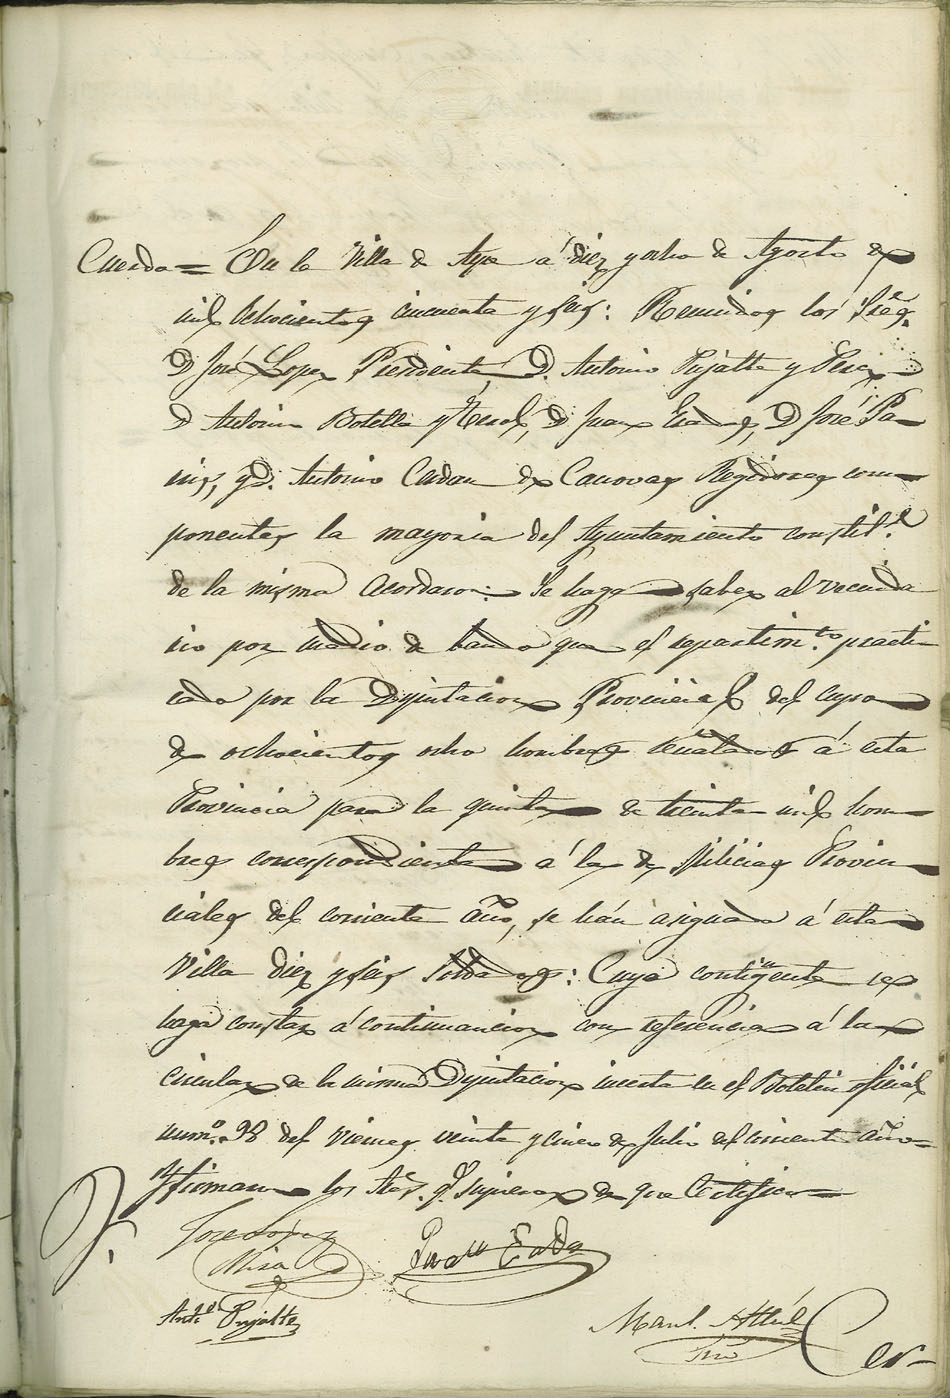 Cuerdo = En la Villa de Aspe á diez y ocho de Agosto de
mil ochocientos cincuenta y seis: Reunidos los Sres.
D José Lopez Presidente D. Antonio Pujalte y Perez
D Antonio Botella y D Juan Erades, D José Pa-
nis, y D. Antonio Caldan de Canovas Regidores com-
ponentes la mayoria del Ayuntamiento constitl.
de la misma Acordaron: Se haga saber al vecinda
rio por medio de bando que el repartimto. practi
cado por la Diputacion Provincial del cupo
de ochocientos ocho hombres señalados á esta
Provincia para la quinta de treinta mil hom-
bres correspondiente á la de Milicias Provin-
ciales del corriente año, se hán asignado á esta
Villa diez y seis soldados: Cuyo contigente se
haga constar á continuacion con referencia á la
circular de la misma Diputacion inserta en el Boletin oficial
numo. 98 del viernes veinte y cinco de Julio del corriente año =
Y firman los Sres. q. supieron de que Certifico =
Jose Lopez
Mira
Juan Erades
Anto. Pujalte
Manl.
Srio
Cer-